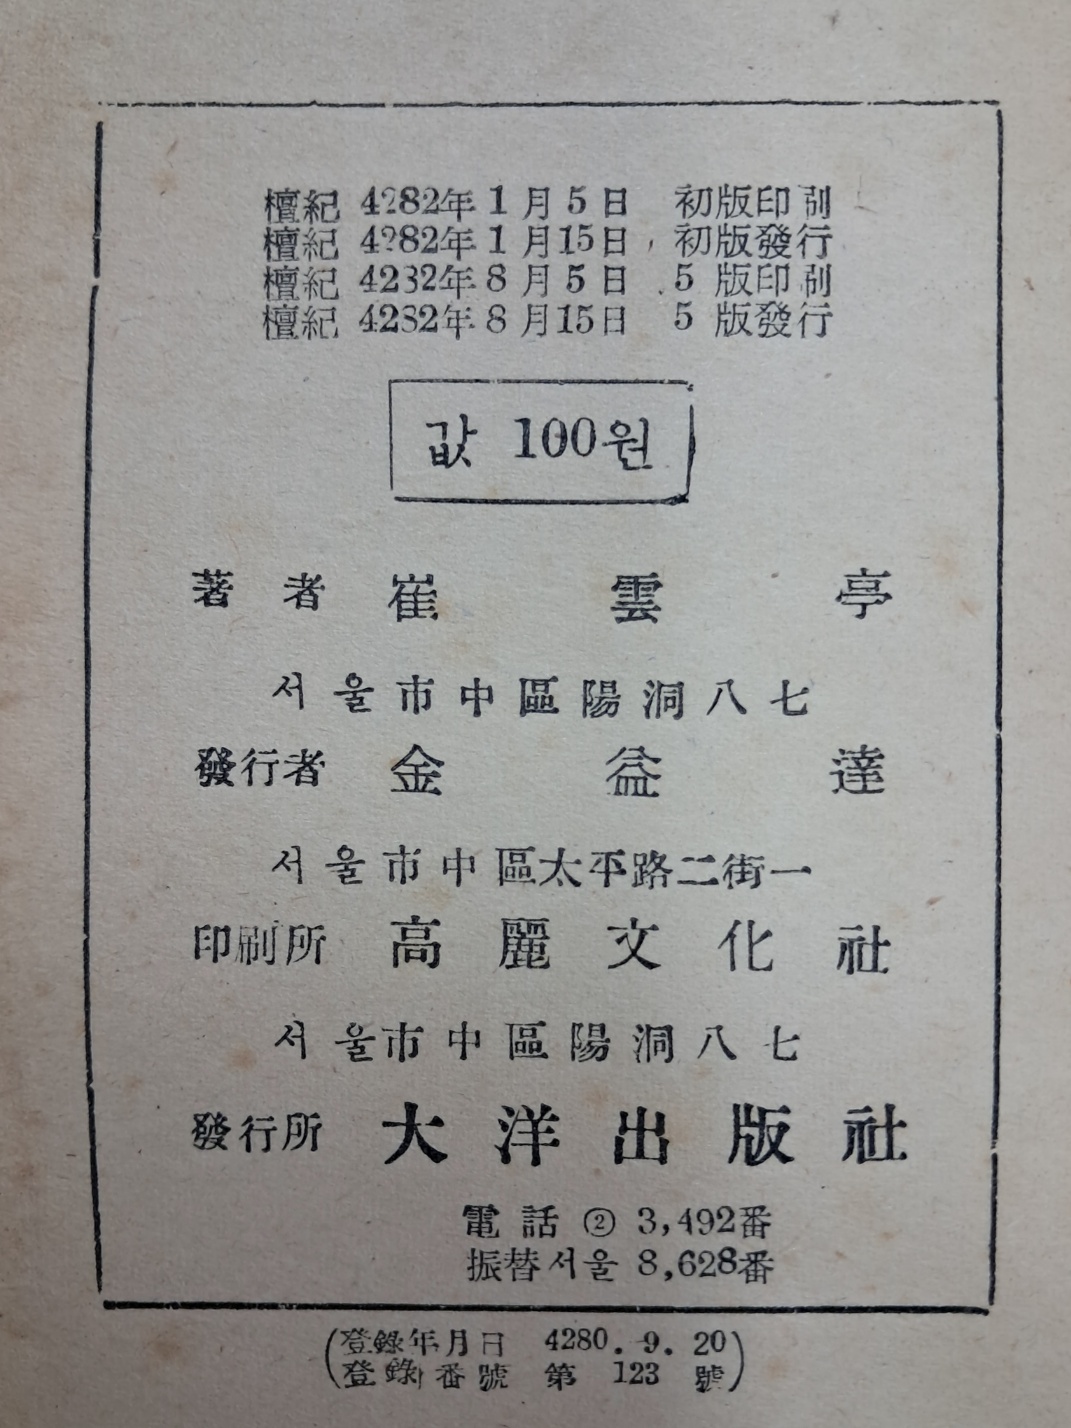 檀紀 4282年 1 月 5 日 初版印刷
檀紀 4282年 1 月 15日 初版發行
檀紀 4282年 8 月 5 日 5 版印刷
檀紀 4282年 8 月 15日 5 版發行
값 100원
著者 崔雲亭
서울市中區陽洞八七
發行者 金益達
서울市中區太平路二街一
印刷所 高麗文化社
서울市中區陽洞八七
發行所 大洋出版社
電話 ② 3,492番
振替서울 8,628番
(登錄年月日 4280. 9. 20)
(登錄番號 第 123 號)